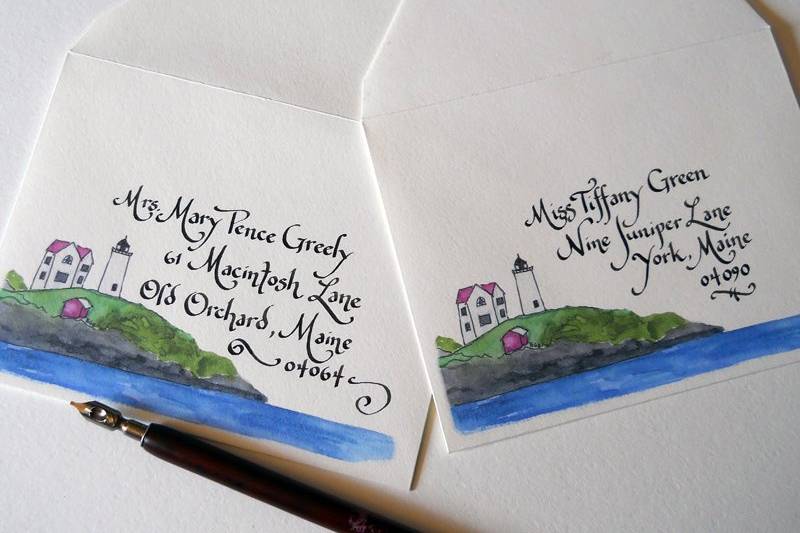 Mrs. Mary Pence Greely
61 Macintosh Lane
Old Orchard, Maine
04064
Miss Tiffany Green
Nine Juniper Lane
York, Maine
04090